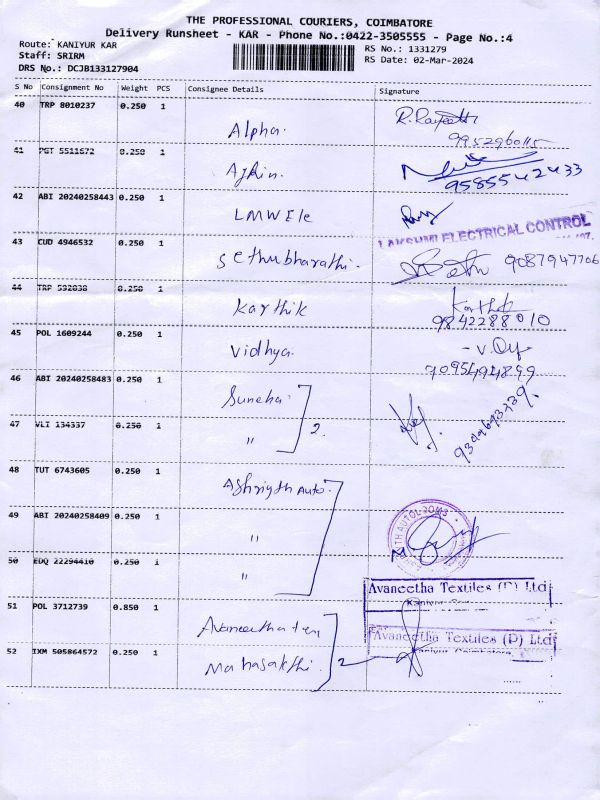 THE PROFESSIONAL COURIERS, COIMBATORE
Delivery Runsheet - KAR - Phone No.:0422-3505555 - Page No.:4
Route: KANIYUR KAR
Staff: SRIRM
DRS No.: DCJB133127904
RS No.: 1331279
RS Date: 02-Mar-2024
S No Consignment No Weight PCS Consignee Details Signature
40 TRP 8010237 0.250 1
Alpha.
9952960115
41 PGT 5511672 0.250 1
9585542433
42 ABI 20240258443 0.250 1
LMW Ele
LAKSHMI ELECTRICAL CONTROL
43 CUD 4946532 0.250 1
Sethubharathi.
9087947706
44 TRP 592838 0.250 1
Karthik
9842288010
45 POL 1609244 0.250 1
Vidhya.
7095494899
46 ABI 20240258483 0.250 1
Suneha.
47 VLI 134337 0.250 1
" 2.
48 TUT 6743605 0.250 1
Auto.
49 ABI 20240258409 0.250 1
"
50 EDQ 22294410 0.250 1
"
Avaneetha Textiles (P) Ltd
51 POL 3712739 0.850 1
Avaneetha tex
Avaneetha Textiles (P) Ltd
52 IXM 505864572 0.250 1
Mahasakthi. 2